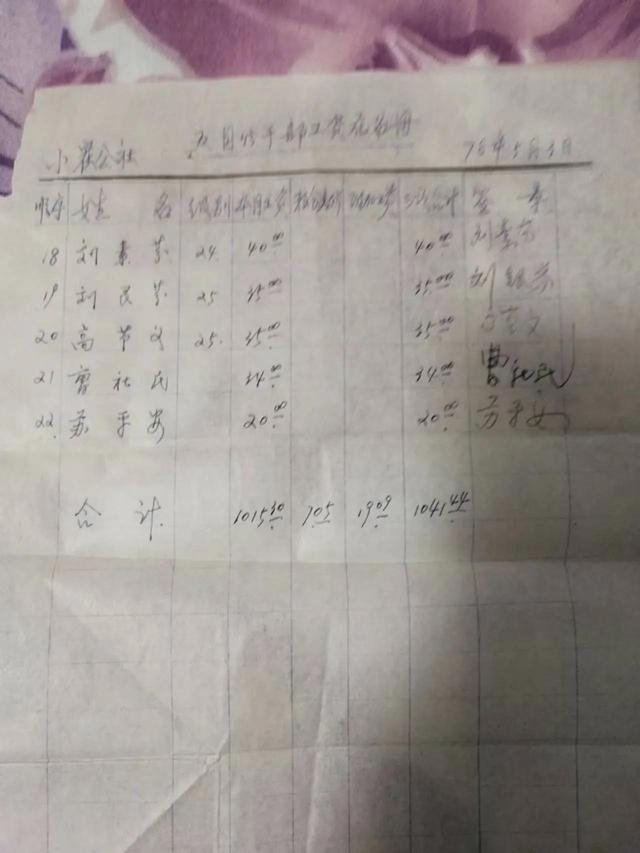 小翟公社 五月份干部工资花名册 76年5月3日
顺序 姓名 级别 本月工资 合计 签章
18 刘素芬 24. 40.00 40.00 刘素芬
19 刘民芬 25 35.00 35.00 刘银芬
20 高节文 25. 35.00 35.00
21 曹社民 34.00 34.00 曹社民
22. 苏平安 20.00 20.00 苏平安
合计 1015.30 7.05 19.09 1041.44